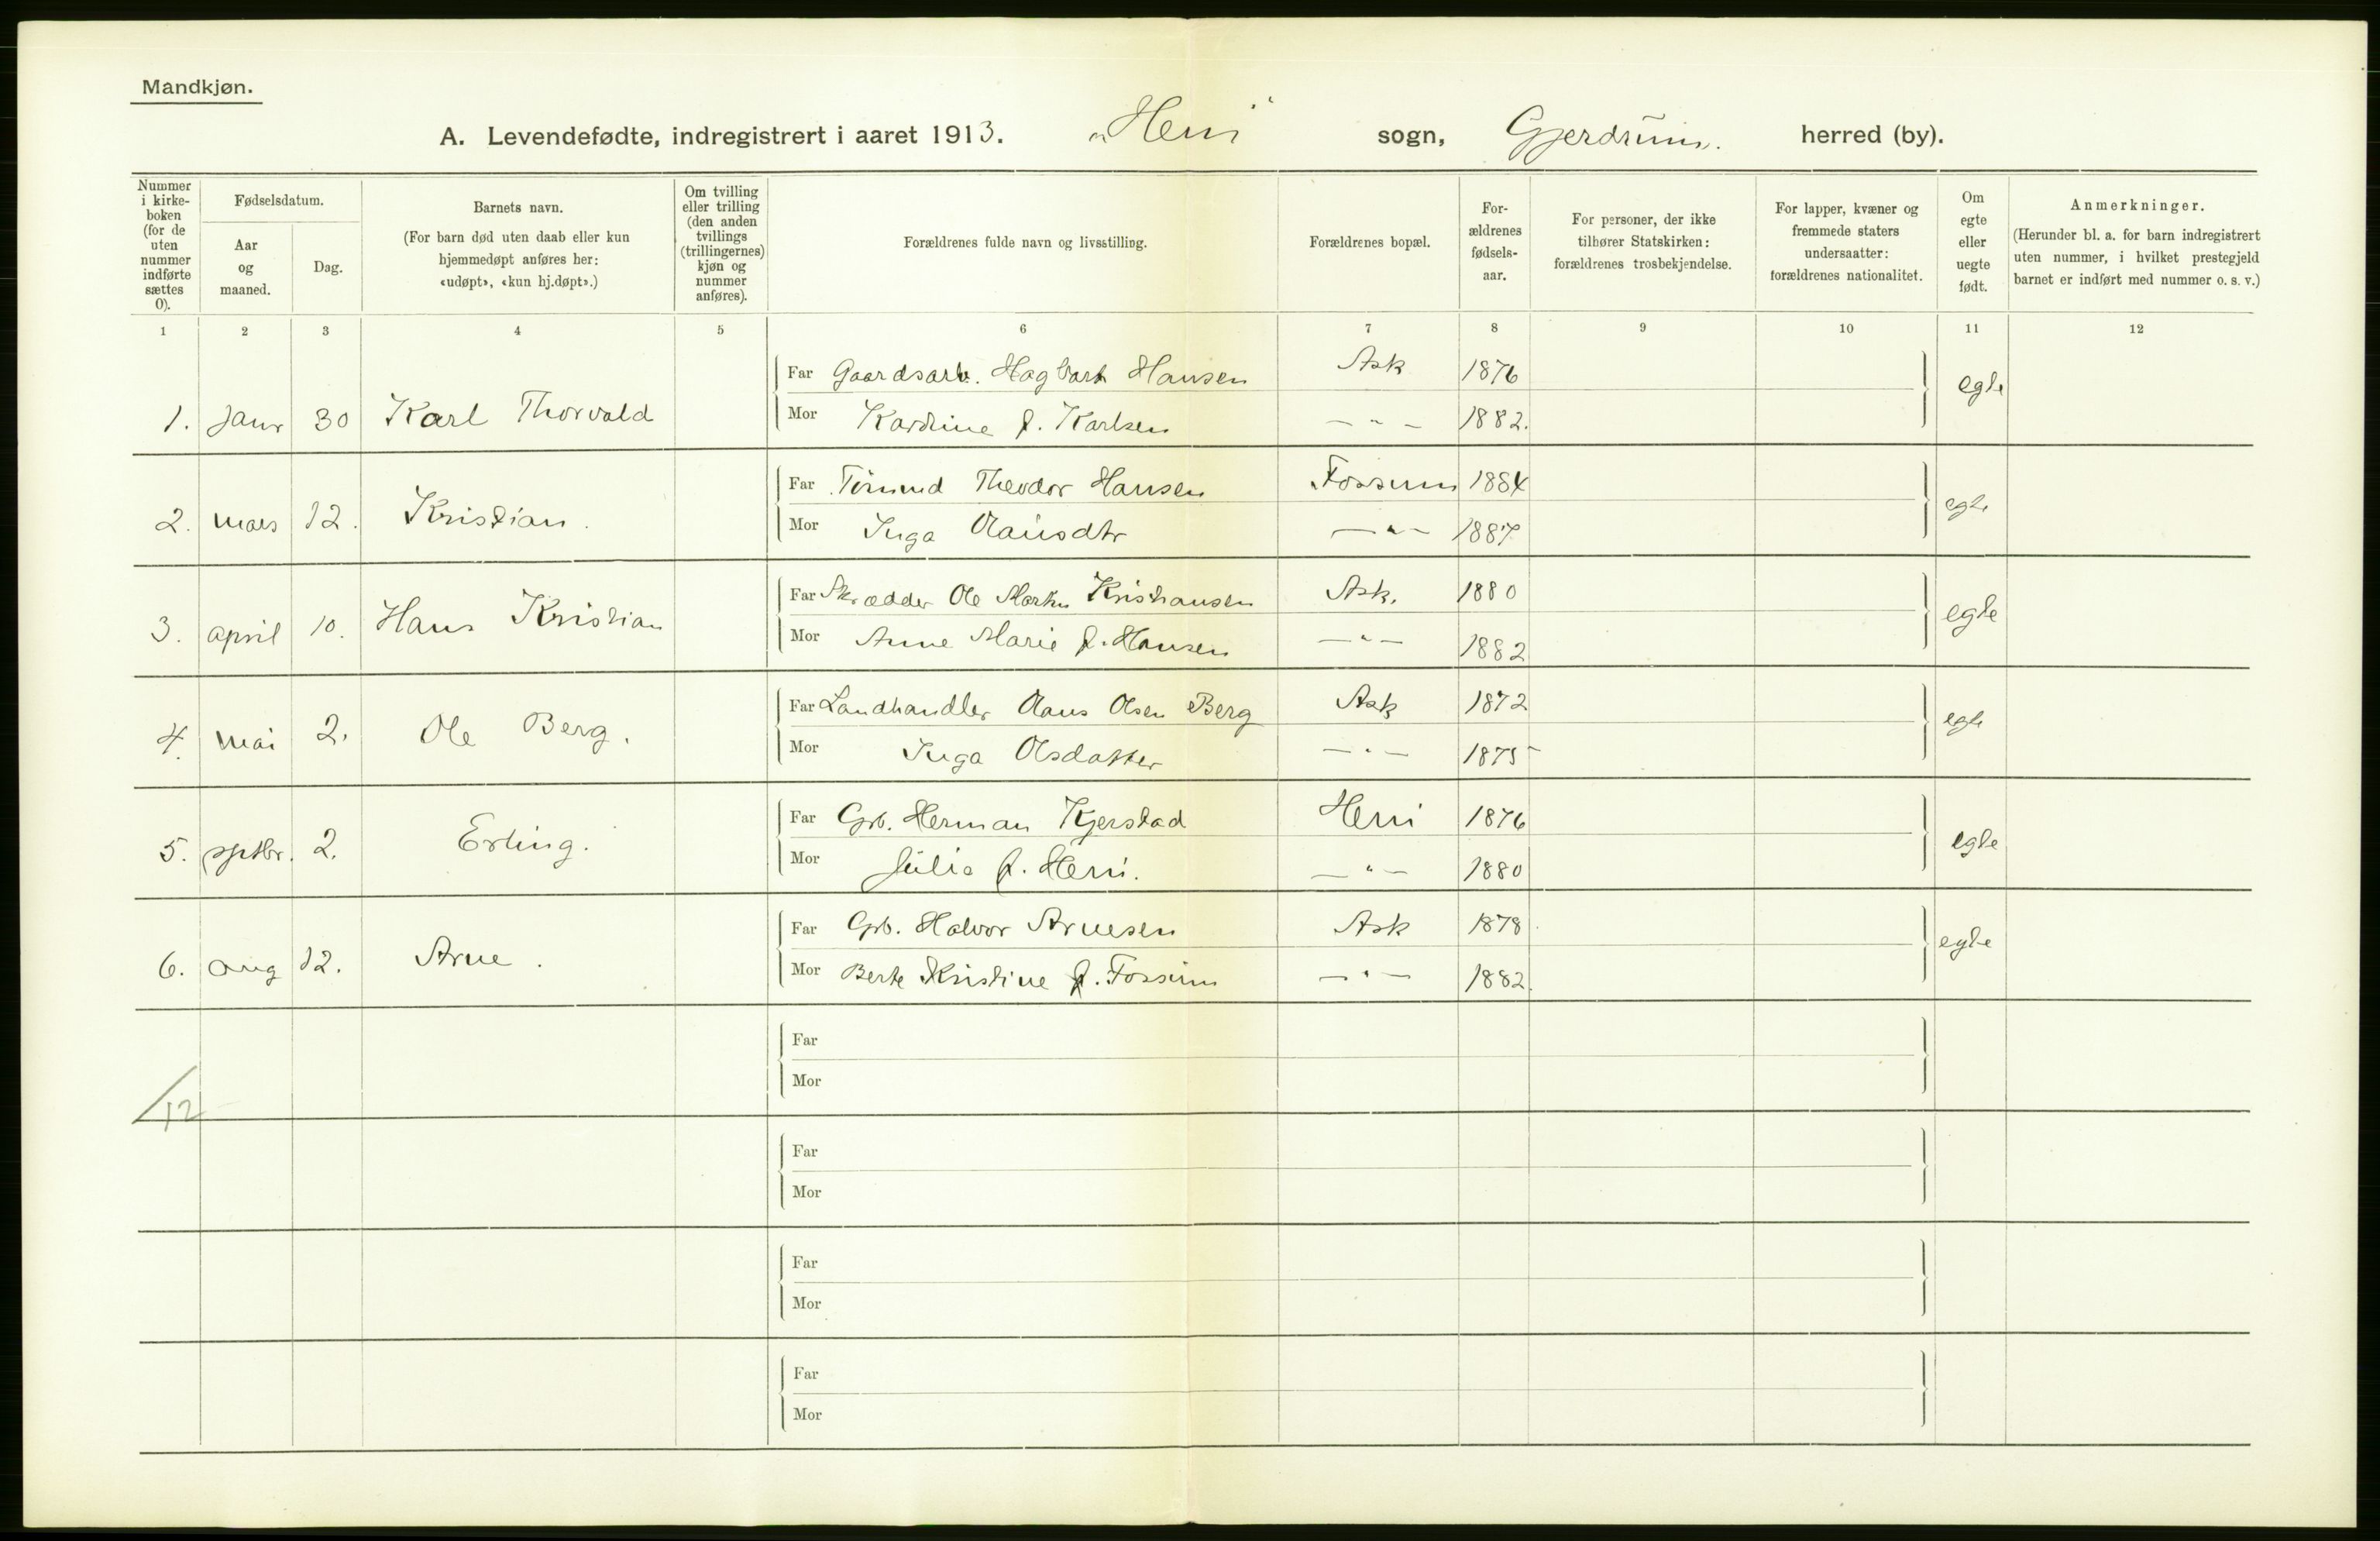 Mandkjøn.
A. Levendefødte, indregistrert i aaret 1913. „Heni" sogn, Gjerdrum. herred (by).
Nummer i kirke-boken (for de uten nummer indførte sættes 0).
Fødselsdatum.
Aar og maaned.
Dag.
Barnets navn.
(For barn død uten daab eller kun hjemmedøpt anføres her: «udøpt», «kun hj.døpt».)
Om tvilling eller trilling (den anden tvillings (trillingernes) kjøn og nummer anføres).
Forældrenes fulde navn og livsstilling.
Forældrenes bopæl.
For-ældrenes fødsels-aar.
For personer, der ikke tilhører Statskirken: forældrenes trosbekjendelse.
For lapper, kvæner og fremmede staters undersaatter: forældrenes nationalitet.
Om egte eller uegte født.
Anmerkninger.
(Herunder bl. a. for barn indregistrert uten nummer, i hvilket prestegjeld barnet er indført med nummer o. s. v.)
1 2 3 4 5 6 7 8 9 10 11 12
Far Gaardsarb. Hagbart Hansen Ask 1876
1. Janr 30 Karl Thorvald egte
Mor Kardine f. Karlsen — " — 1882.
Far Theodor Hansen Fossum 1884
2. mars 12. Kristian. egte
Mor Inga Olausdtr — " — 1887
Far Skrædder Ole Martin Kristiansen Ask. 1880
3. april 10. Hans Kristian egte
Mor Anne Marie f. Hansen — " — 1882
Far Landhandler Olaus Olsen Berg Ask 1872
4. mai 2. Ole Berg. egte
Mor Inga Olsdatter — " — 1875
Far Grb. Herman Kjerstad Heni 1876
5. septbr. 2. Erling. egte
Mor Julie f. Heni. — " — 1880
Far Grb. Halvor Arnesen Ask 1878
6. aug 12. Arne. egte
Mor Berte Kristine f. Fossum — " — 1882.
Far
Mor
/12
Far
Mor
Far
Mor
Far
Mor